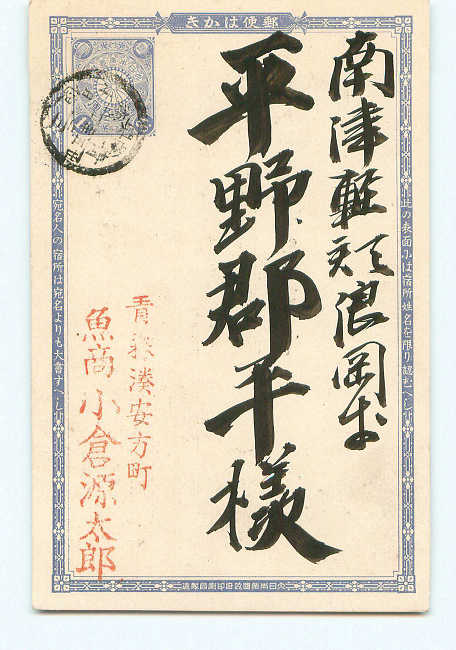 郵便はかき
南津軽郡浪岡村
平野郡平様
青森湊安方町
魚商小倉源太郎
此の表面には宿所姓名を限り認むへし
宛名人の宿所は宛名よりも大書すへし
大日本帝國政府印刷局製造